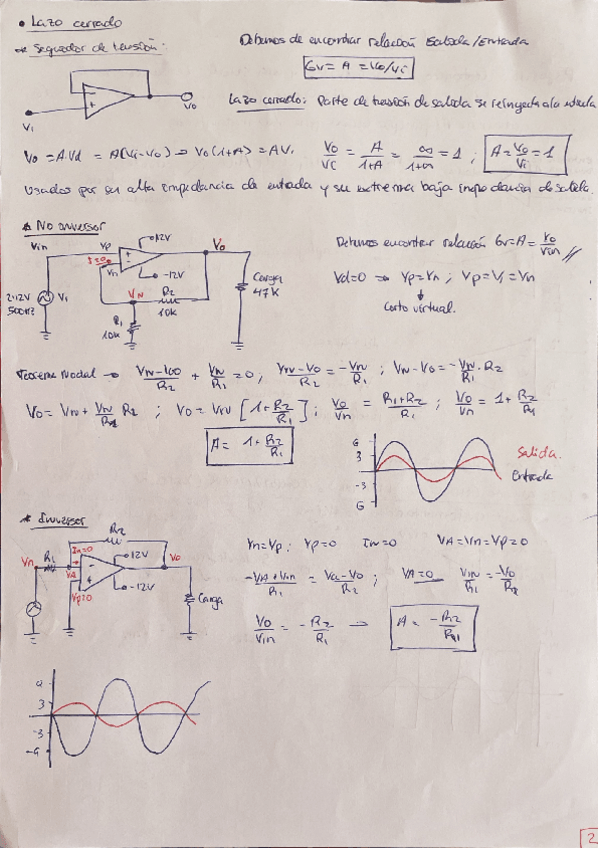 • Lazo cerrado
* Seguidor de tensión:
Debemos de encontrar relación Salida/Entrada
Gv = A = Vo/Vi
Lazo cerrado: Parte de tensión de salida se reinyecta a la entrada
Vi
Vo
Vo = A·Vd = A(Vi-Vo) → Vo(1+A) = A Vi
Vo/Vi = A/(1+A) = ∞/(1+∞) = 1 ; A = Vo/Vi = 1
Usados por ser alta impedancia de entrada y su extrema baja impedancia de salida.
* No inversor
Vin
Vp
I=0
Vn
+12V
-12V
Vo
Vi
500Hz
VN
R2
10K
R1
10K
Carga
47K
Debemos encontrar relación Gv=A= Vo/Vin
Vd=0 → Vp=Vn ; Vp=Vi=Vin
Corto virtual.
Teorema Nodal → (VN-Vo)/R2 + VN/R1 = 0 ; (VN-Vo)/R2 = -VN/R1 ; VN-Vo = -VN/R1 · R2
Vo = VN + VN/R1 R2 ; Vo = VN [1+R2/R1] ; Vo/VN = (R1+R2)/R1 ; Vo/VN = 1+R2/R1
A = 1+R2/R1
6
3
-3
6
Salida.
Entrada
* Inversor
Vn
R1
R2
In=0
VA
Vp=0
12V
-12V
Vo
Carga
Vn=Vp ; Vp=0 In=0 VA=Vn=Vp=0
(-VA+Vin)/R1 = (VA-Vo)/R2 ; VA=0 Vin/R1 = -Vo/R2
Vo/Vin = -R2/R1 → A = -R2/R1
3
-3
-6
2